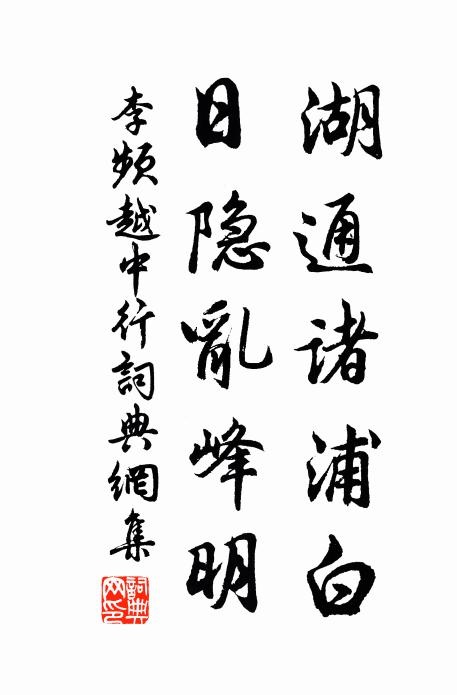 湖通诸浦白
日隐亂峰明
李频越中行詞典網集
詞典网印